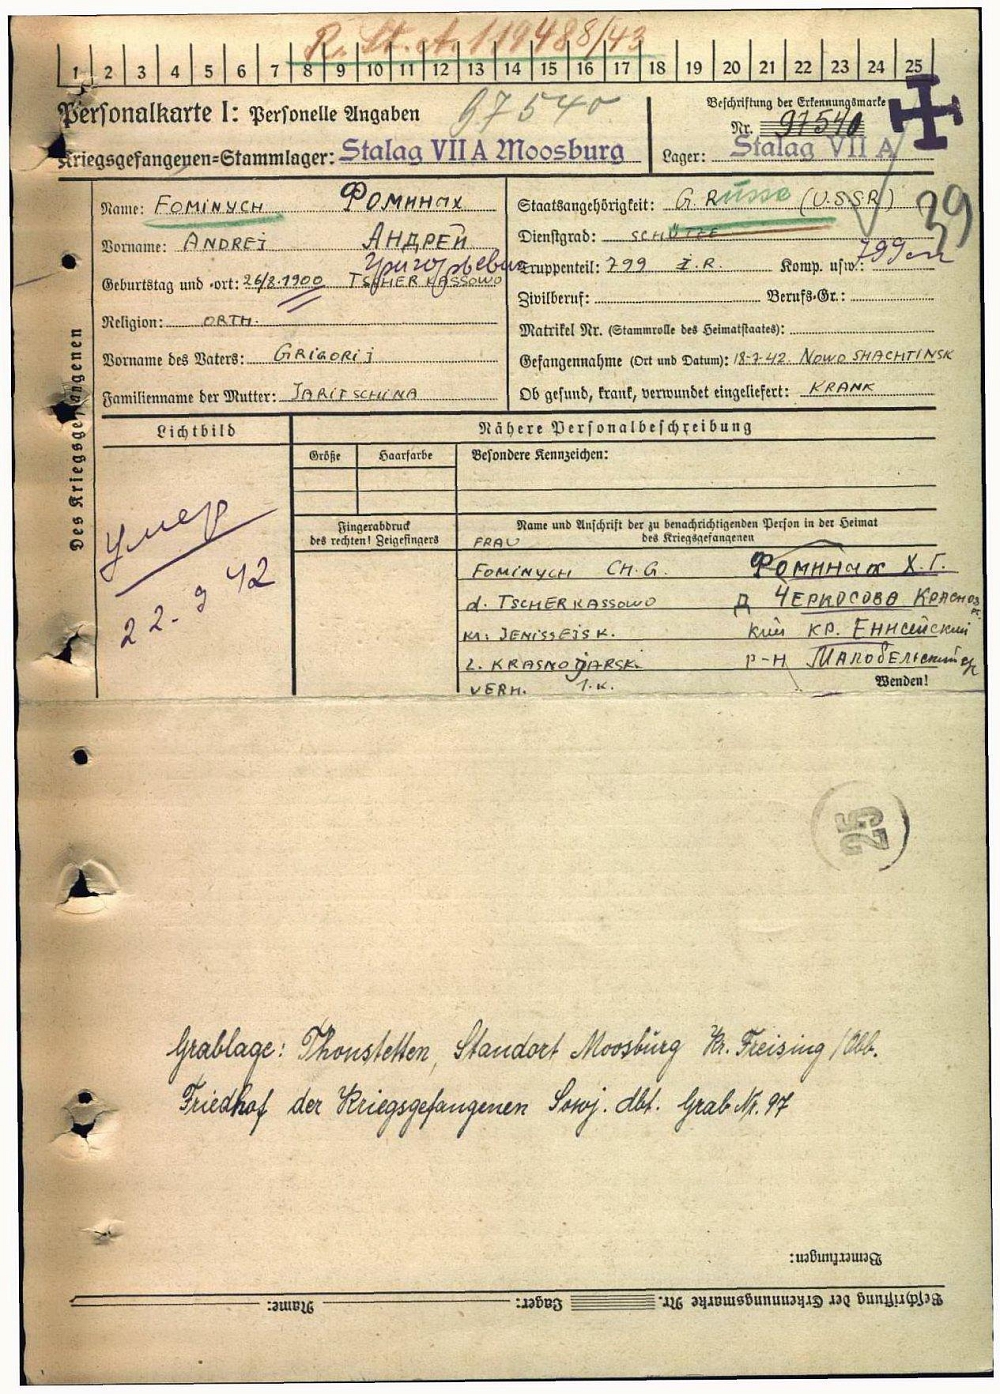 R. St. A. 119488/43
1 2 3 4 5 6 7 8 9 10 11 12 13 14 15 16 17 18 19 20 21 22 23 24 25
Personalkarte I: Personelle Angaben 97540
Beschriftung der Erkennungsmarke
Nr. 97540
Kriegsgefangenen-Stammlager: Stalag VII A Moosburg
Lager: Stalag VII A
39
Des Kriegsgefangenen
Name: FOMINYCH Фоминых
Vorname: ANDREJ АНДРЕЙ
Григорьевич
Geburtstag und -ort: 26/8.1900 TSCHERKASSOWO
Religion: ORTH.
Vorname des Vaters: GRIGORIJ
Familienname der Mutter: JARITSCHINA
Staatsangehörigkeit: G. Russe (U.S.S.R)
Dienstgrad: SCHÜTZE
Truppenteil: 799 I.R. Komp. usw.: 799 сп
Zivilberuf: Berufs-Gr.:
Matrikel Nr. (Stammrolle des Heimatstaates):
Gefangennahme (Ort und Datum): 18-7-42. NOWO SHACHTINSK
Ob gesund, krank, verwundet eingeliefert: KRANK
Lichtbild
умер
22. 9 42
Nähere Personalbeschreibung
Größe Haarfarbe Besondere Kennzeichen:
Fingerabdruck
des rechten! Zeigefingers
Name und Anschrift der zu benachrichtigenden Person in der Heimat
des Kriegsgefangenen
FRAU
FOMINYCH CH.G. Фоминых Х.Г.
d. TSCHERKASSOWO Д ЧЕРКОСОВО Красноя
kr: JENISSEISK. кий кр. Еннсейский
L. KRASNOJARSK. р-н
VERH. 1.K.
Wenden!
Grablage: Thonstetten, Standort Moosburg Kr. Freising/Obb.
Friedhof der Kriegsgefangenen Sowj. Abt. Grab Nr. 97
Bemerkungen:
Beschriftung der Erkennungsmarke Nr. Lager: Name: